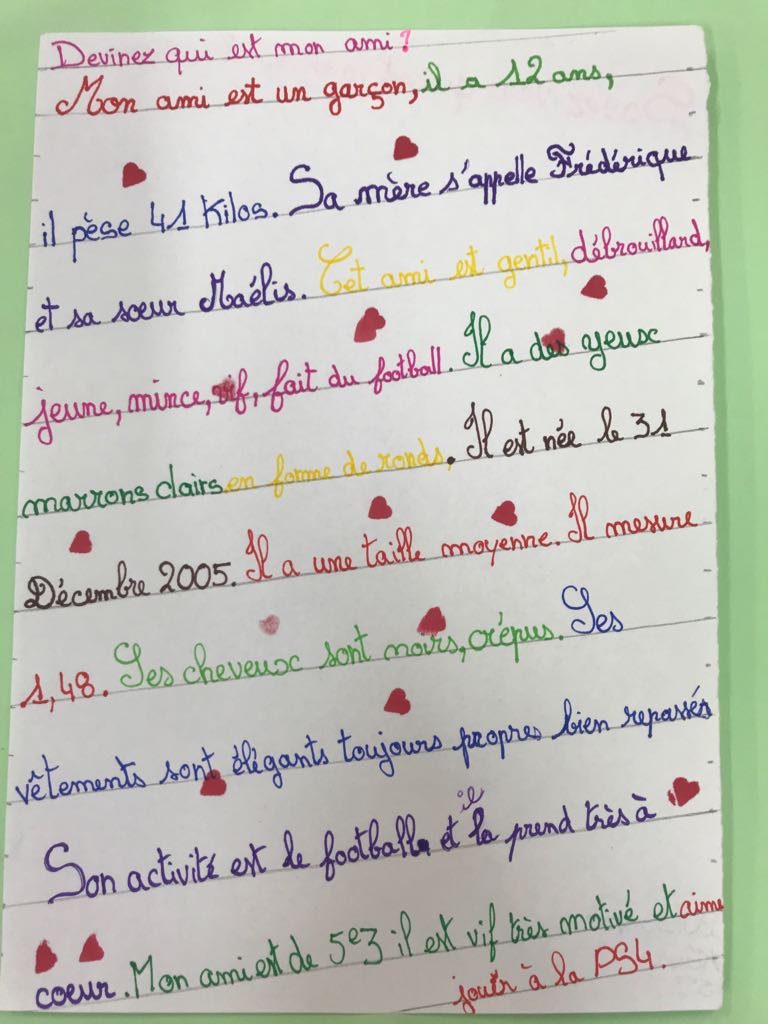 Devinez qui est mon ami?
Mon ami est un garçon, il a 12 ans,
il pèse 41 Kilos. Sa mère s'appelle Frédérique
et sa sœur Maélis. Cet ami est gentil, débrouillard,
jeune, mince, vif, fait du football. Il a des yeux
marrons clairs en forme de ronds. Il est née le 31
Décembre 2005. Il a une taille moyenne. Il mesure
1,48. Ses cheveux sont noirs, crépus. Ses
vêtements sont élégants toujours propres bien repassés
Son activité est le football et il la prend très à
coeur. Mon ami est de 5e3 il est vif très motivé et aime
jouer à la PS4.